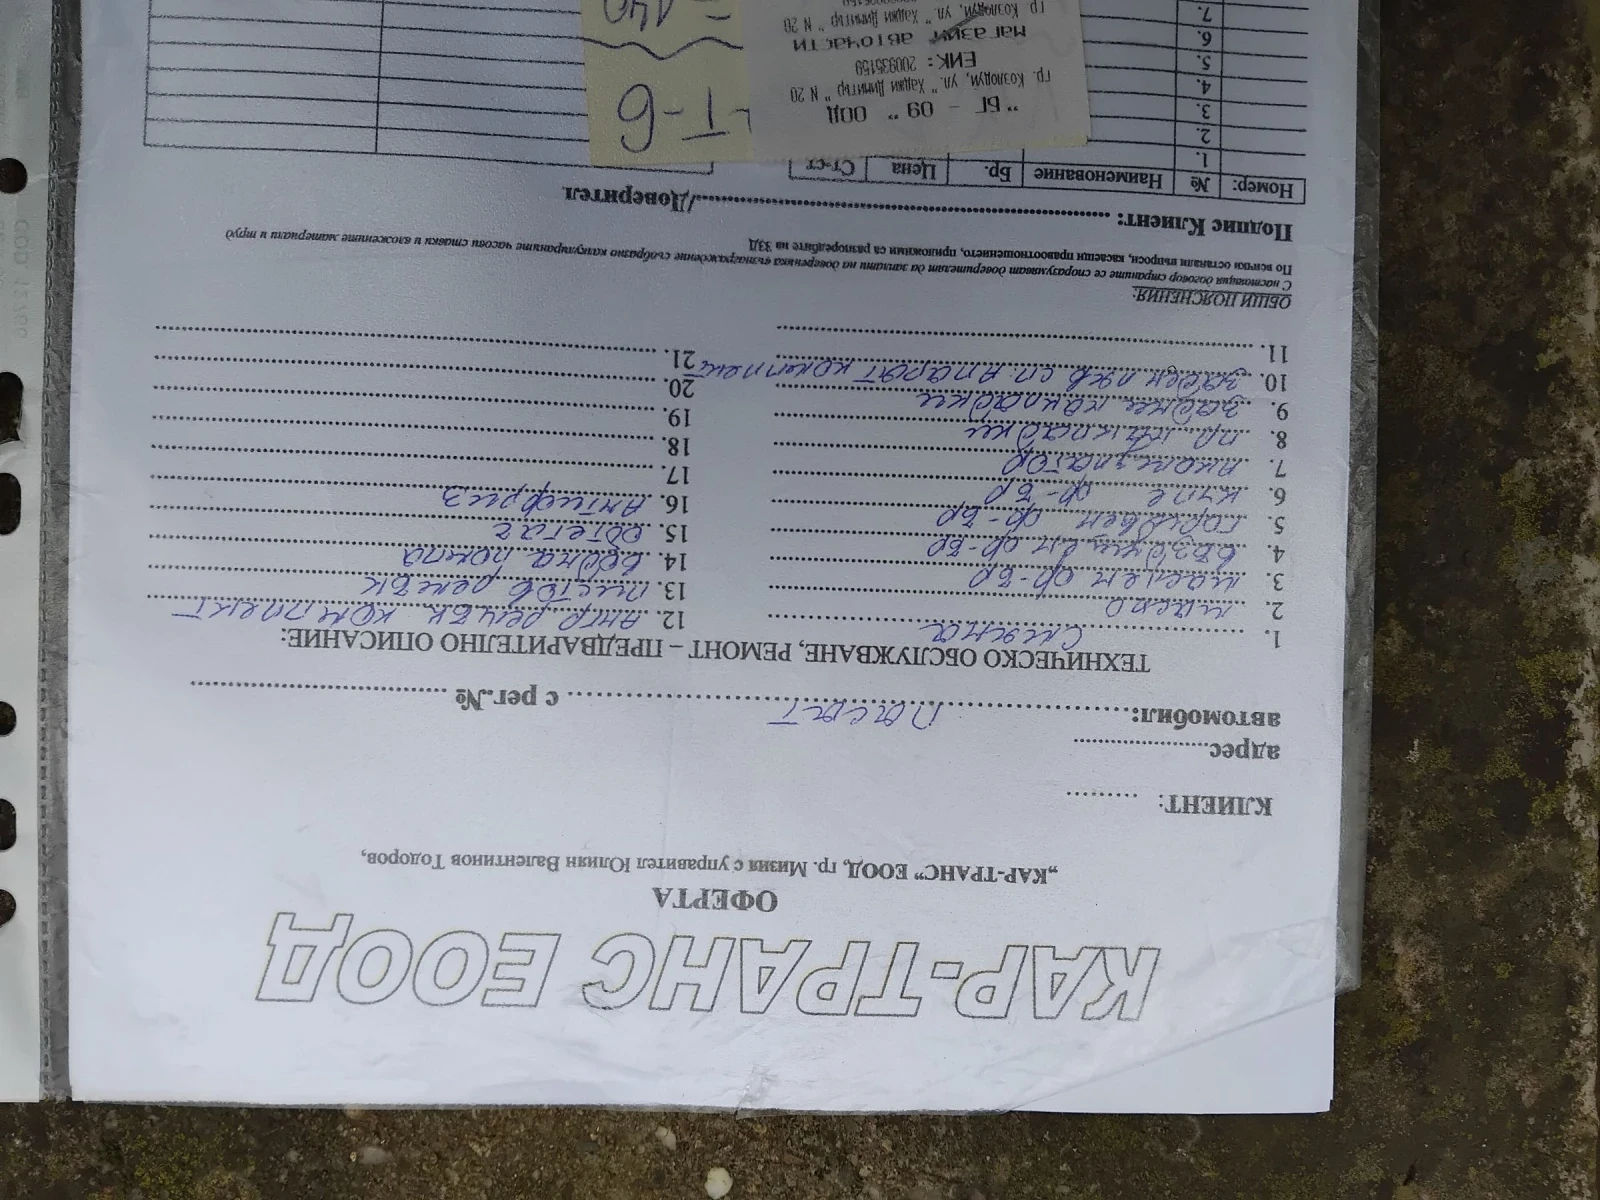 КАР-ТРАНС ЕООД
ОФЕРТА
„КАР-ТРАНС" ЕООД, гр. Мизия с управител Юлиян Валентинов Тодоров,
КЛИЕНТ: .........
адрес....................
автомобил: Пасат с рег.№
ТЕХНИЧЕСКО ОБСЛУЖВАНЕ, РЕМОНТ – ПРЕДВАРИТЕЛНО ОПИСАНИЕ:
1. смяна
2. масло
3. маслен ф-бр
4. въздушен ф-бр
5. горивен ф-бр
6. купе ф-бр
7. акомулатор
8. пр. накладки
9. задни накладки
10. заден ляв сп. апарат комплект
11.
12. анг ремък комплект
13. пистов ремък
14. водна помпа
15. обтегач
16. Антифриз
17.
18.
19.
20.
21.
ОБЩИ ПОЯСНЕНИЯ:
С настоящия договор страните се споразумяват доверителят да заплати на довереника възнаграждение съобразно калкулираните часови ставки и вложените материали и труд
По всички останали въпроси, касаещи правоотношението, приложими са разпоредбите на ЗЗД
Подпис Клиент: ............/Доверител
Номер: № Наименование Бр. Цена Ст-ст
1.
2.
3.
4.
5.
6.
7.
"БГ - 09 " ООД
гр. Козлодуй, ул. " Хаджи Димитър " N 20
ЕИК: 200935159
магазин авточасти
гр Козлодуй, ул. " Хаджи Димитър " N 20
-Т-6
=140